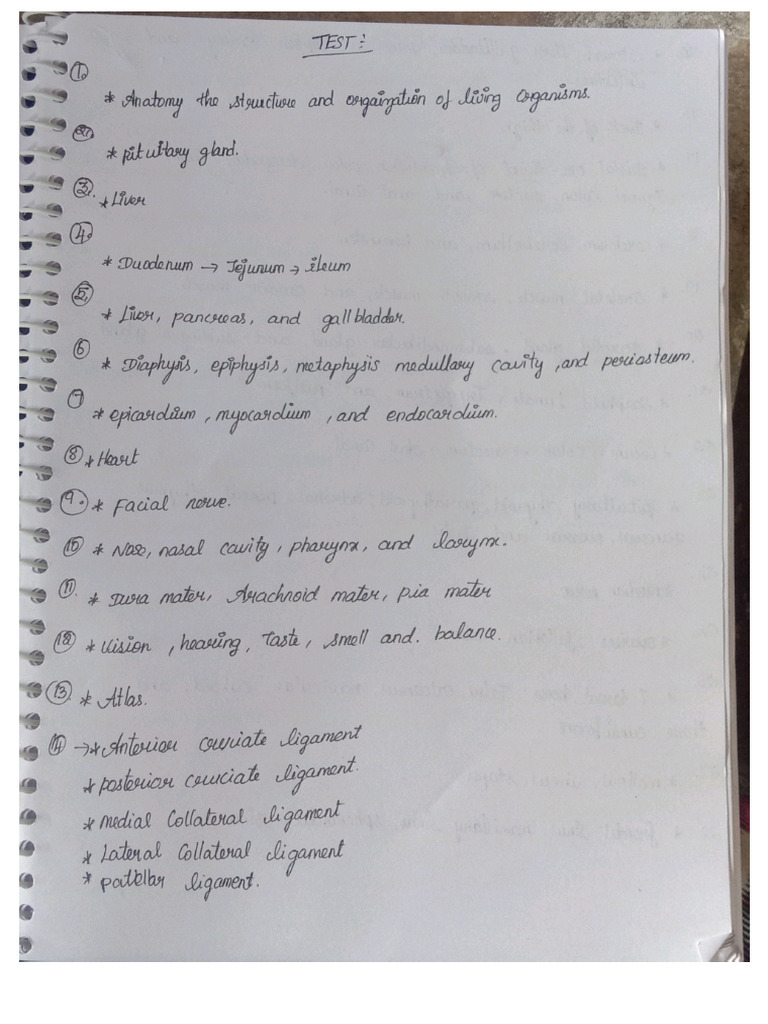 TEST:
①.
* Anatomy the structure and orgaization of living organisms.
②.
* pituitary gland.
③.
* Liver
④.
* Duodenum → Jejunum → ileum
⑤.
* Liver, pancreas, and gallbladder.
⑥
* Diaphysis, epiphysis, metaphysis medullary cavity, and periosteum.
⑦
* epicardium, myocardium, and endocardium.
⑧ * Heart
⑨. * Facial nerve.
⑩ * Nose, nasal cavity, pharynx, and larynx.
⑪. * Dura mater, Arachnoid mater, pia mater
⑫ * Vision, hearing, Taste, smell and. balance.
⑬. * Atlas.
⑭ → * Anterior cruciate ligament
* posterior cruciate ligament.
* medial collateral ligament
* Lateral collateral ligament
* patellar ligament.